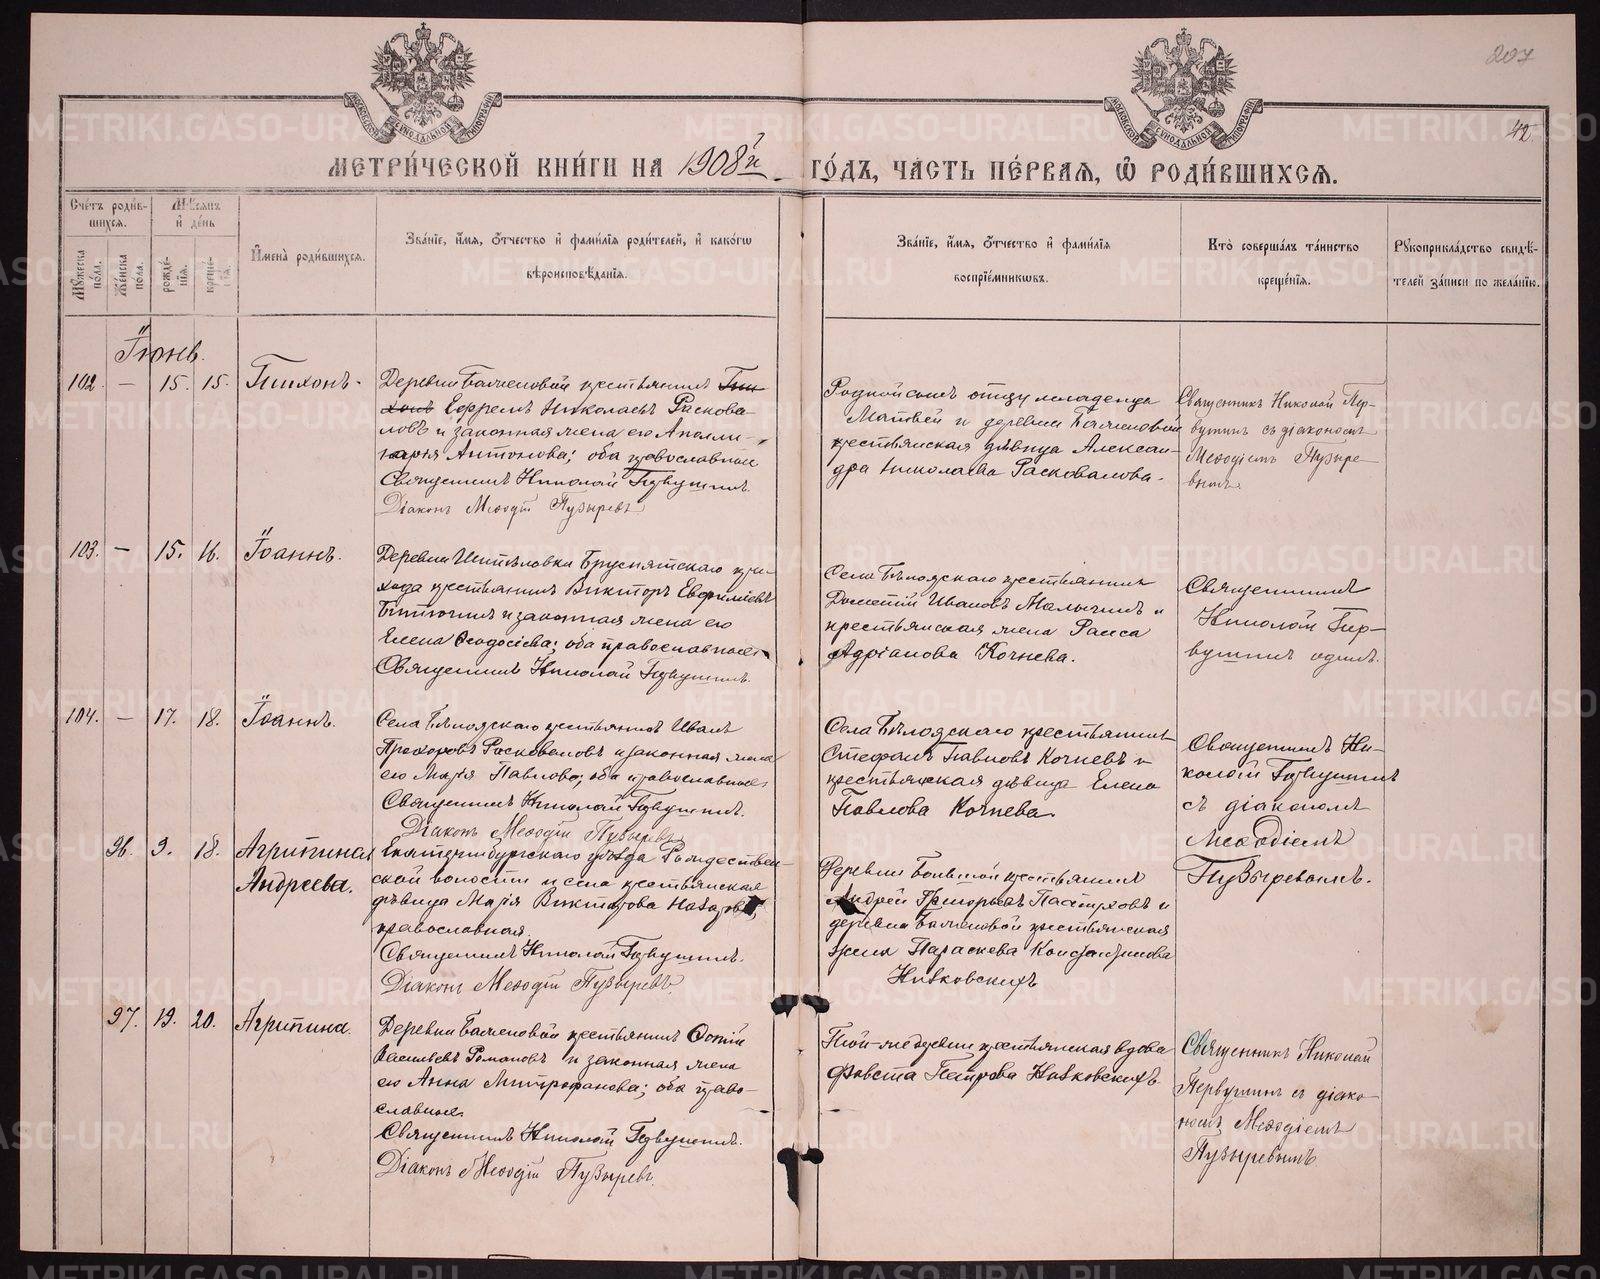 207
42.
МЕТРИ́ЧЕСКОЙ КНИ́ГИ НА 1908й ГО́ДЪ, ЧА́СТЬ ПЕ́РВАѦ, Ѽ РОДИ́ВШИХСѦ.
Сче́тъ роди́вшихсѧ.
Мѣ́сѧцъ и҆ де́нь
Мꙋ́жеска по́ла.
Же́нска по́ла.
рожде́нїѧ.
креще́нїѧ.
И҆мена̀ роди́вшихсѧ.
Зва́нїе, и҆́мѧ, ѻ҆́тчество и҆ фами́лїѧ роди́телей, и҆ како́гѡ
вѣроисповѣ́данїѧ.
Зва́нїе, и҆́мѧ, ѻ҆́тчество и҆ фами́лїѧ
воспрїе́мникѡвъ.
Кто̀ соверша́лъ та́инство
креще́нїѧ.
Рꙋкоприкла́дство свидѣ́телей за́писи по жела́нїю.
Іюнь.
102. — 15. 15. Тихонъ.
Деревни Балченовой крестьянинъ Ти-
хонъ Ефремъ Николаевъ Раскова-
ловъ и законная жена его Аполли-
нарія Антонова; оба православные
Священникъ Николай Первушинъ.
Діаконъ Меѳодій Пузыревъ
Родной сынъ отцу младенца
Матвей и деревни Балченовой
крестьянская дѣвица Алексан-
дра Николаева Расковалова.
Священникъ Николай Пер-
вушинъ съ діакономъ
Меѳодіемъ Пузыре-
вымъ.
103. — 15. 16. Іоаннъ.
Деревни Шипѣловки Бруснятскаго при-
хода крестьянинъ Викторъ Евфиміевъ
и законная жена его
Елена Ѳеодосіева; оба православные
Священникъ Николай Первушинъ.
Села Бѣлоярскаго крестьянинъ
Дометій Ивановъ Малычинъ и
крестьянская жена Раиса
Адріанова Кочнева.
Священникъ
Николай Пер-
вушинъ одинъ.
104. — 17. 18. Іоаннъ.
Села Бѣлоярскаго крестьянинъ Иванъ
Прохоровъ Расковаловъ и законная жена
его Марія Павлова; оба православные
Священникъ Николай Первушинъ.
Діаконъ Меѳодій Пузыревъ
Села Бѣлоярскаго крестьянинъ
Стефанъ Павловъ Кочневъ и
крестьянская дѣвица Елена
Павлова Кочнева.
Священникъ Ни-
колай Первушинъ
съ діакономъ
Меѳодіемъ
Пузыревымъ.
96. 9. 18. Агрипина
Андреева.
Екатеринбургскаго уѣзда Рождествен-
ской волости и села крестьянская
дѣвица Марія Викторова Назарова,
православная.
Священникъ Николай Первушинъ.
Діаконъ Меѳодій Пузыревъ
Деревни Большой крестьянинъ
Андрей Григорьевъ Пастуховъ и
деревни Балченовой крестьянская
жена Параскева Константинова
Низковскихъ
97. 19. 20. Агрипина.
Деревни Балченовой крестьянинъ Фотій
Васильевъ Романовъ и законная жена
его Анна Митрофанова; оба право-
славные
Священникъ Николай Первушинъ.
Діаконъ Меѳодій Пузыревъ.
Той-же деревни крестьянская вдова
Фавста Петрова Низковскихъ
Священникъ Николай
Первушинъ съ діако-
номъ Меѳодіемъ
Пузыревымъ
METRIKI.GASO-URAL.RU